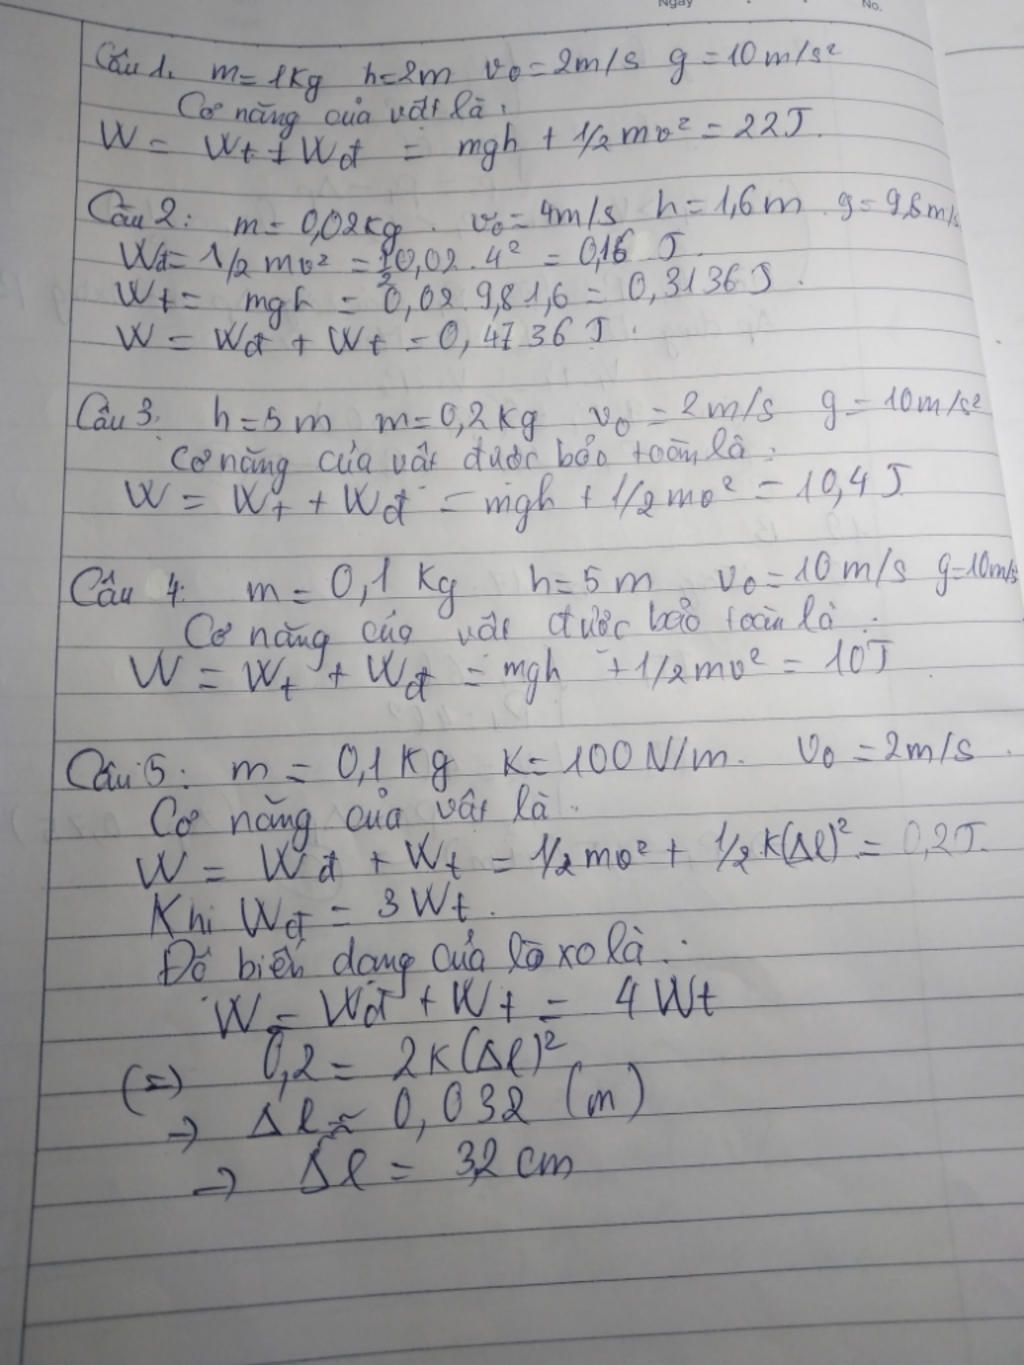 Ngày
No.
Câu 1. m = 1kg h = 2m v₀ = 2m/s g = 10m/s²
Cơ năng của vật là:
W = Wt + Wđ = mgh + 1/2 mv² = 22J.
Câu 2: m = 0,02kg. v₀ = 4m/s h = 1,6m g = 9,8m/s
Wđ = 1/2 mv² = 1/2 0,02 . 4² = 0,16 J.
Wt = mgh = 0,02 9,8 1,6 = 0,3136J.
W = Wđ + Wt = 0,4736J.
Câu 3. h = 5m m = 0,2kg v₀ = 2m/s g = 10m/s²
Cơ năng của vật được bảo toàn là:
W = Wt + Wđ = mgh + 1/2 mv² = 10,4J
Câu 4: m = 0,1 kg h = 5m v₀ = 10m/s g = 10m/s
Cơ năng của vật được bảo toàn là:
W = Wt + Wđ = mgh + 1/2 mv² = 10J
Câu 5: m = 0,1kg K = 100N/m. v₀ = 2m/s.
Cơ năng của vật là:
W = Wđ + Wt = 1/2 mv² + 1/2 K(Δl)² = 0,2J.
Khi Wđ = 3Wt.
Độ biến dạng của lò xo là:
W = Wđ + Wt = 4Wt
(=) 0,2 = 2K(Δl)²
⇒ Δl ≈ 0,032 (m)
⇒ Δl = 3,2 cm